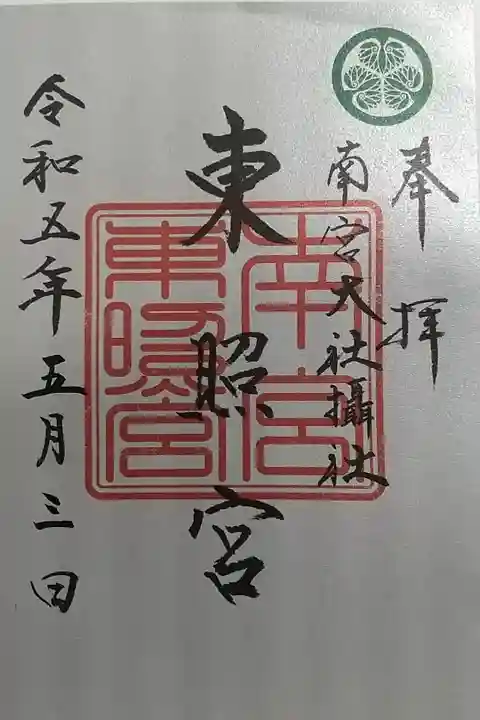 奉拝
南宮大社攝社
東照宮
令和五年五月三日
南宮
東照宮